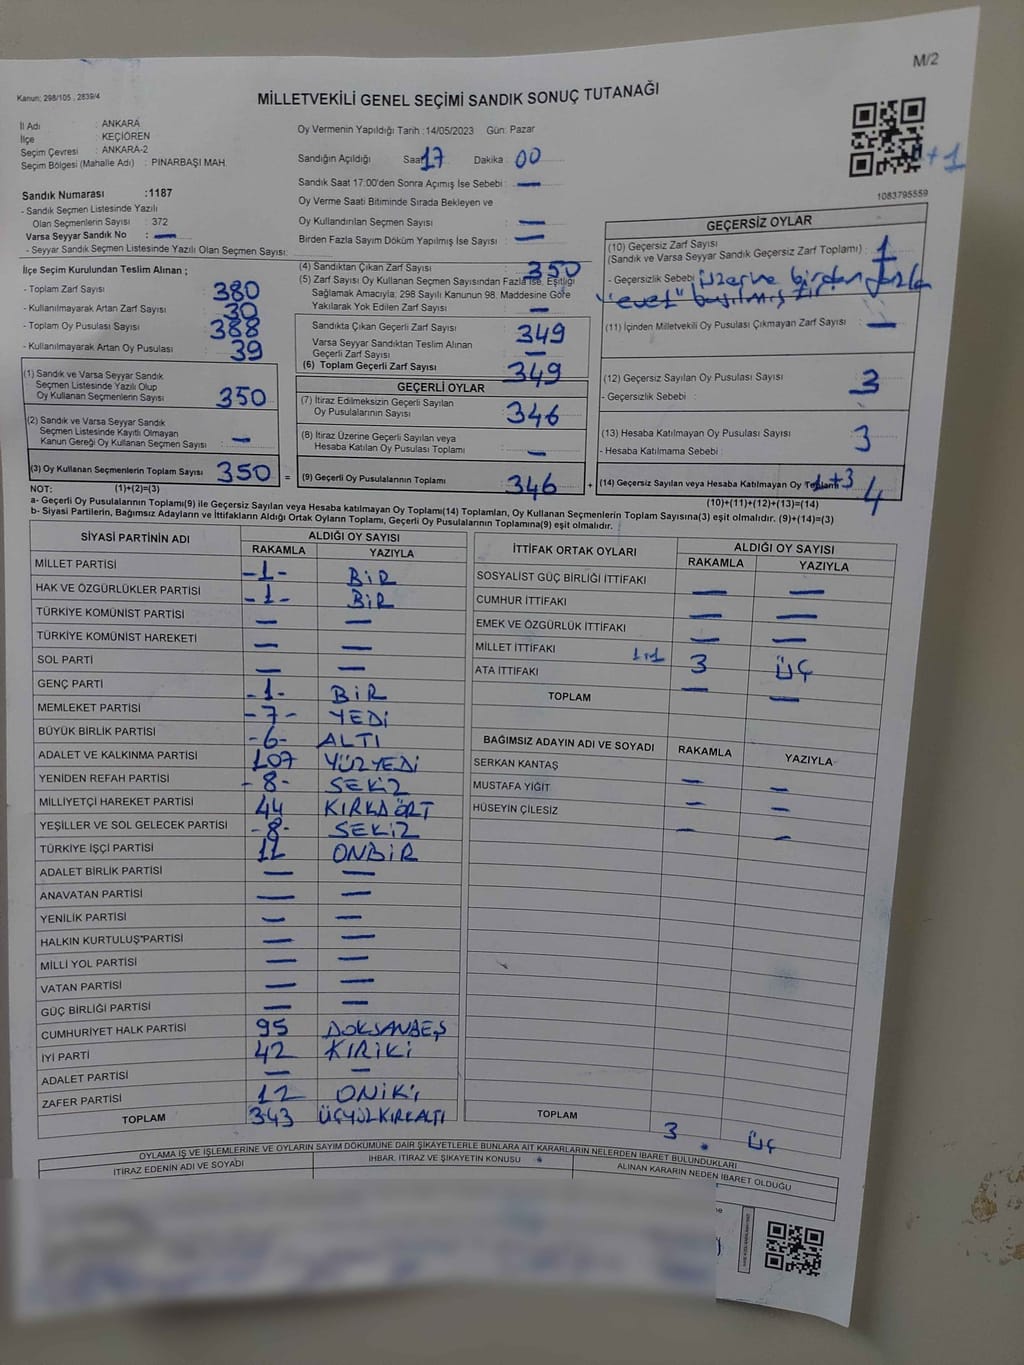 M/2
Kanun; 298/105 , 2839/4
MİLLETVEKİLİ GENEL SEÇİMİ SANDIK SONUÇ TUTANAĞI
İl Adı : ANKARA
İlçe : KEÇİÖREN
Seçim Çevresi : ANKARA-2
Seçim Bölgesi (Mahalle Adı) : PINARBAŞI MAH.
Oy Vermenin Yapıldığı Tarih :14/05/2023 Gün: Pazar
Sandığın Açıldığı Saat 17 Dakika : 00
Sandık Saat 17:00'den Sonra Açımış İse Sebebi : —
Oy Verme Saati Bitiminde Sırada Bekleyen ve
Oy Kullandırılan Seçmen Sayısı : —
Birden Fazla Sayım Döküm Yapılmış İse Sayısı : —
+1
1083795559
Sandık Numarası :1187
- Sandık Seçmen Listesinde Yazılı
Olan Seçmenlerin Sayısı : 372
Varsa Seyyar Sandık No : —
- Seyyar Sandık Seçmen Listesinde Yazılı Olan Seçmen Sayısı:
İlçe Seçim Kurulundan Teslim Alınan ;
- Toplam Zarf Sayısı : 380
- Kullanılmayarak Artan Zarf Sayısı : 30
- Toplam Oy Pusulası Sayısı : 388
- Kullanılmayarak Artan Oy Pusulası : 39
(1) Sandık ve Varsa Seyyar Sandık
Seçmen Listesinde Yazılı Olup
Oy Kullanan Seçmenlerin Sayısı : 350
(2) Sandık ve Varsa Seyyar Sandık
Seçmen Listesinde Kayıtlı Olmayan
Kanun Gereği Oy Kullanan Seçmen Sayısı : —
(3) Oy Kullanan Seçmenlerin Toplam Sayısı : 350
(4) Sandıktan Çıkan Zarf Sayısı : 350
(5) Zarf Sayısı Oy Kullanan Seçmen Sayısından Fazla İse, Eşitliği
Sağlamak Amacıyla; 298 Sayılı Kanunun 98. Maddesine Göre
Yakılarak Yok Edilen Zarf Sayısı : —
Sandıkta Çıkan Geçerli Zarf Sayısı : 349
Varsa Seyyar Sandıktan Teslim Alınan
Geçerli Zarf Sayısı : —
(6) Toplam Geçerli Zarf Sayısı : 349
GEÇERLİ OYLAR
(7) İtiraz Edilmeksizin Geçerli Sayılan
Oy Pusulalarının Sayısı : 346
(8) İtiraz Üzerine Geçerli Sayılan veya
Hesaba Katılan Oy Pusulası Toplamı : —
= (9) Geçerli Oy Pusulalarının Toplamı : 346
GEÇERSİZ OYLAR
(10) Geçersiz Zarf Sayısı
(Sandık ve Varsa Seyyar Sandık Geçersiz Zarf Toplamı) : 1
- Geçersizlik Sebebi : üzerine birden fazla
"evet" basılmıştır
(11) İçinden Milletvekili Oy Pusulası Çıkmayan Zarf Sayısı : —
(12) Geçersiz Sayılan Oy Pusulası Sayısı : 3
- Geçersizlik Sebebi :
(13) Hesaba Katılmayan Oy Pusulası Sayısı : 3
- Hesaba Katılmama Sebebi :
+ (14) Geçersiz Sayılan veya Hesaba Katılmayan Oy Toplamı 1+3 4
NOT: (1)+(2)=(3) (10)+(11)+(12)+(13)=(14)
a- Geçerli Oy Pusulalarının Toplamı(9) ile Geçersiz Sayılan veya Hesaba katılmayan Oy Toplamı(14) Toplamları, Oy Kullanan Seçmenlerin Toplam Sayısına(3) eşit olmalıdır. (9)+(14)=(3)
b- Siyasi Partilerin, Bağımsız Adayların ve İttifakların Aldığı Ortak Oyların Toplamı, Geçerli Oy Pusulalarının Toplamına(9) eşit olmalıdır.
SİYASİ PARTİNİN ADI ALDIĞI OY SAYISI
RAKAMLA YAZIYLA
MİLLET PARTİSİ -1- BİR
HAK VE ÖZGÜRLÜKLER PARTİSİ -1- BİR
TÜRKİYE KOMÜNİST PARTİSİ — —
TÜRKİYE KOMÜNİST HAREKETİ — —
SOL PARTİ — —
GENÇ PARTİ -1- BİR
MEMLEKET PARTİSİ -7- YEDİ
BÜYÜK BİRLİK PARTİSİ -6- ALTI
ADALET VE KALKINMA PARTİSİ 107 YÜZYEDİ
YENİDEN REFAH PARTİSİ -8- SEKİZ
MİLLİYETÇİ HAREKET PARTİSİ 44 KIRKDÖRT
YEŞİLLER VE SOL GELECEK PARTİSİ -8- SEKİZ
TÜRKİYE İŞÇİ PARTİSİ 11 ONBİR
ADALET BİRLİK PARTİSİ — —
ANAVATAN PARTİSİ — —
YENİLİK PARTİSİ — —
HALKIN KURTULUŞ PARTİSİ — —
MİLLİ YOL PARTİSİ — —
VATAN PARTİSİ — —
GÜÇ BİRLİĞİ PARTİSİ — —
CUMHURİYET HALK PARTİSİ 95 DOKSANBEŞ
İYİ PARTİ 42 KIRIKİ
ADALET PARTİSİ — —
ZAFER PARTİSİ 12 ONİKİ
TOPLAM 343 ÜÇYÜZKIRKALTI
İTTİFAK ORTAK OYLARI ALDIĞI OY SAYISI
RAKAMLA YAZIYLA
SOSYALİST GÜÇ BİRLİĞİ İTTİFAKI — —
CUMHUR İTTİFAKI — —
EMEK VE ÖZGÜRLÜK İTTİFAKI — —
MİLLET İTTİFAKI 3 ÜÇ
ATA İTTİFAKI — —
TOPLAM
BAĞIMSIZ ADAYIN ADI VE SOYADI RAKAMLA YAZIYLA
SERKAN KANTAŞ — —
MUSTAFA YİĞİT — —
HÜSEYİN ÇİLESİZ — —
TOPLAM 3 ÜÇ
OYLAMA İŞ VE İŞLEMLERİNE VE OYLARIN SAYIM DÖKÜMÜNE DAİR ŞİKAYETLERLE BUNLARA AİT KARARLARIN NELERDEN İBARET BULUNDUKLARI
İTİRAZ EDENİN ADI VE SOYADI İHBAR, İTİRAZ VE ŞİKAYETİN KONUSU ALINAN KARARIN NEDEN İBARET OLDUĞU